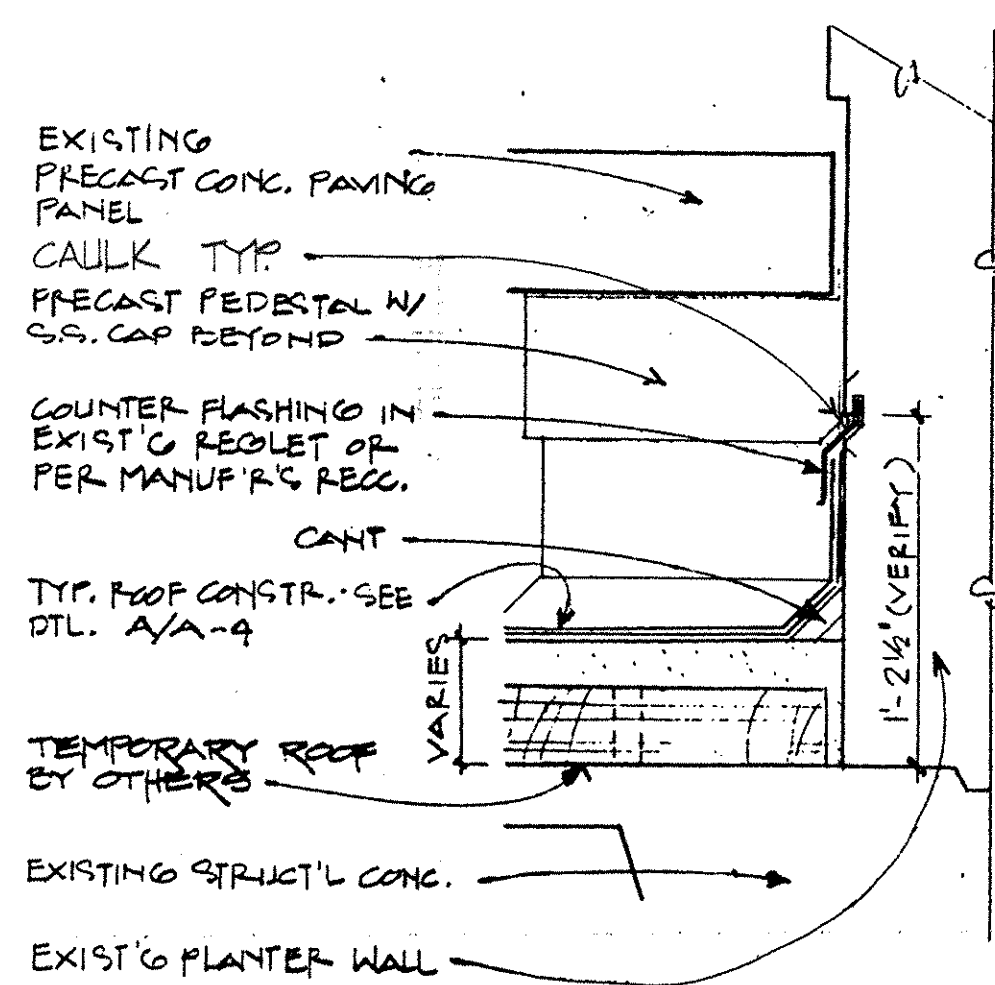 EXISTING
PRECAST CONC. PAVING
PANEL
CAULK TYP.
PRECAST PEDESTAL W/
S.S. CAP BEYOND
COUNTER FLASHING IN
EXIST'G REGLET OR
PER MANUF'R'S RECC.
CANT
TYP. ROOF CONSTR. · SEE
DTL. A/A-4
VARIES
1'-2½" (VERIFY)
TEMPORARY ROOF
BY OTHERS
EXISTING STRUCT'L CONC.
EXIST'G PLANTER WALL